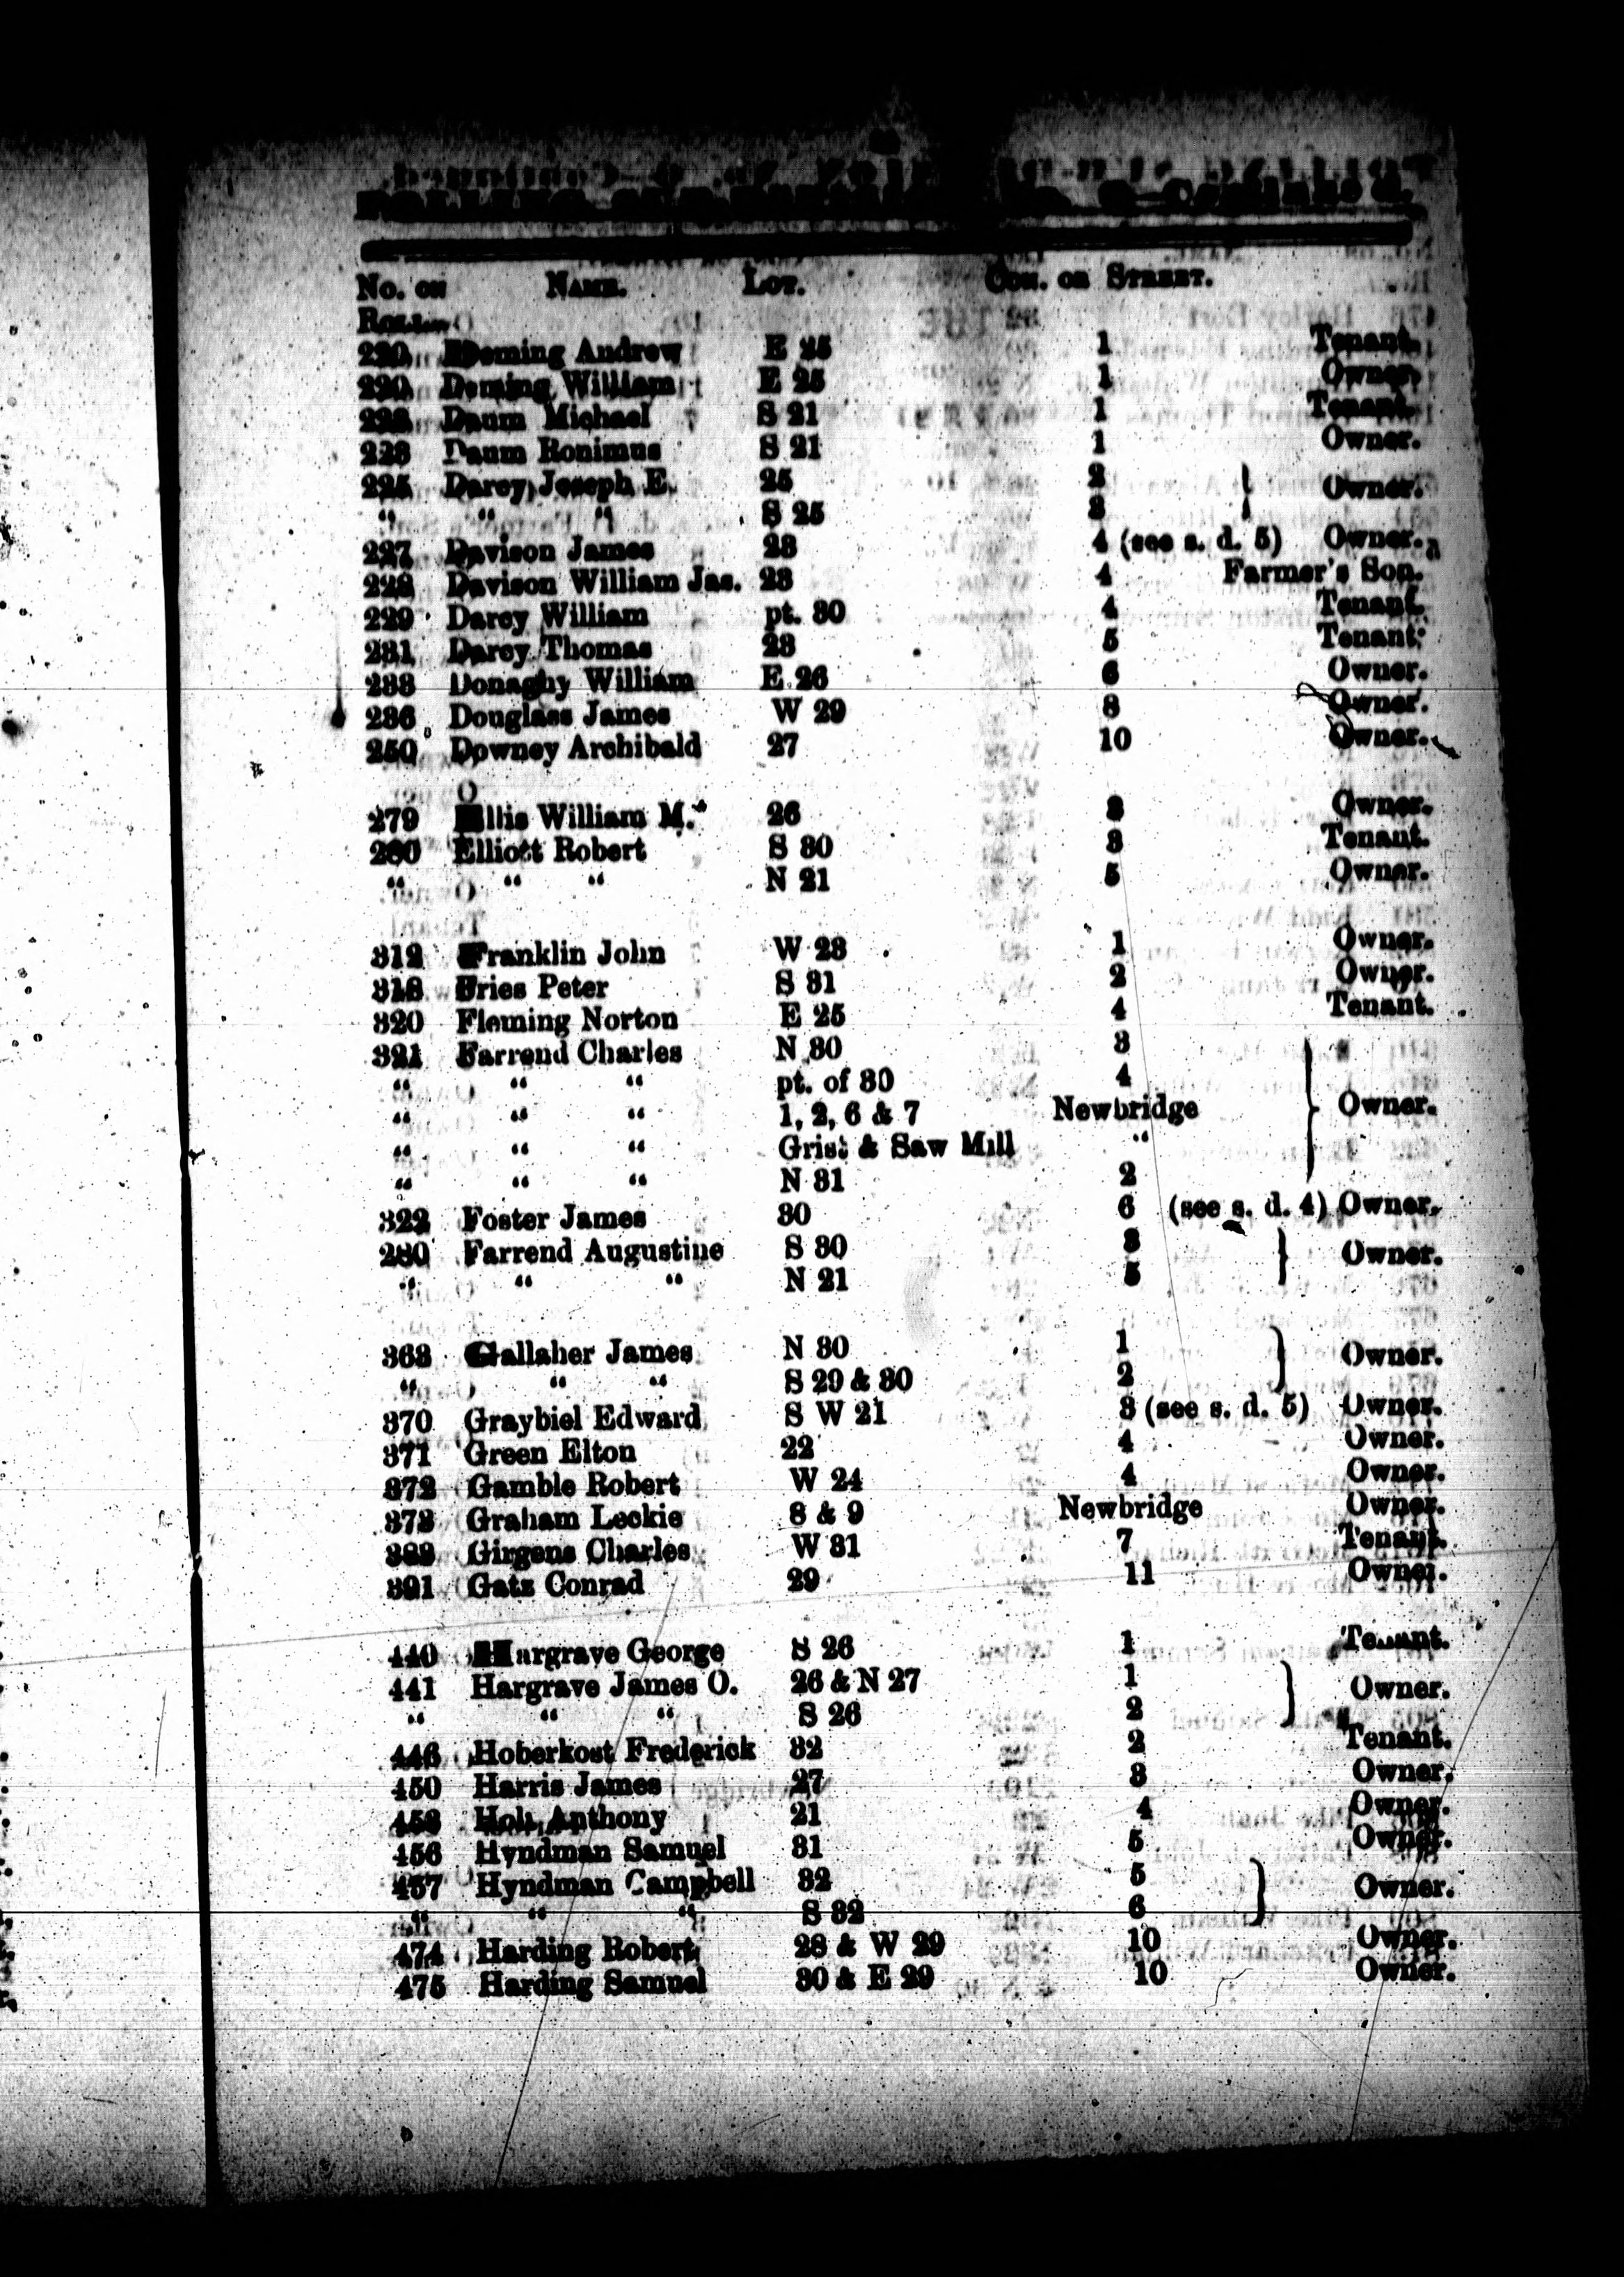 POLLING SUB-DIVISION No. 6—Continued.
No. on NAME. LOT. CON. OR STREET.
ROLL.
220 Deming Andrew E 25 1 Tenant.
220 Deming William E 25 1 Owner.
223 Daum Michael S 21 1 Tenant.
223 Daum Ronimus S 21 1 Owner.
225 Darcy Joseph E. 25 2 Owner.
" " " S 25 3
227 Davison James 23 4 (see s. d. 5) Owner.
228 Davison William Jas. 23 4 Farmer's Son.
229 Darcy William pt. 30 4 Tenant.
231 Darcy Thomas 23 5 Tenant.
233 Donaghy William E 26 6 Owner.
236 Douglass James W 29 8 Owner.
250 Downey Archibald 27 10 Owner.
279 Ellis William M. 26 3 Owner.
280 Elliott Robert S 30 3 Tenant.
" " " N 21 5 Owner.
312 Franklin John W 23 1 Owner.
318 Fries Peter S 31 2 Owner.
320 Fleming Norton E 25 4 Tenant.
321 Farrend Charles N 30 3
" " " pt. of 30 4
" " " 1, 2, 6 & 7 Newbridge Owner.
" " " Grist & Saw Mill "
" " " N 31 2
322 Foster James 30 6 (see s. d. 4) Owner.
280 Farrend Augustine S 30 3 Owner.
" " " N 21 5
363 Gallaher James N 30 1 Owner.
" " " S 29 & 30 2
370 Graybiel Edward S W 21 3 (see s. d. 5) Owner.
371 Green Elton 22 4 Owner.
372 Gamble Robert W 24 4 Owner.
373 Graham Leckie 8 & 9 Newbridge Owner.
383 Girgens Charles W 31 7 Tenant.
391 Gatz Conrad 29 11 Owner.
440 Hargrave George S 26 1 Tenant.
441 Hargrave James O. 26 & N 27 1 Owner.
" " " S 26 2
446 Hoberkost Frederick 32 2 Tenant.
450 Harris James 27 3 Owner.
453 Holt Anthony 21 4 Owner.
456 Hyndman Samuel 31 5 Owner.
457 Hyndman Campbell 32 5 Owner.
" " " S 32 6
474 Harding Robert 28 & W 29 10 Owner.
475 Harding Samuel 30 & E 29 10 Owner.